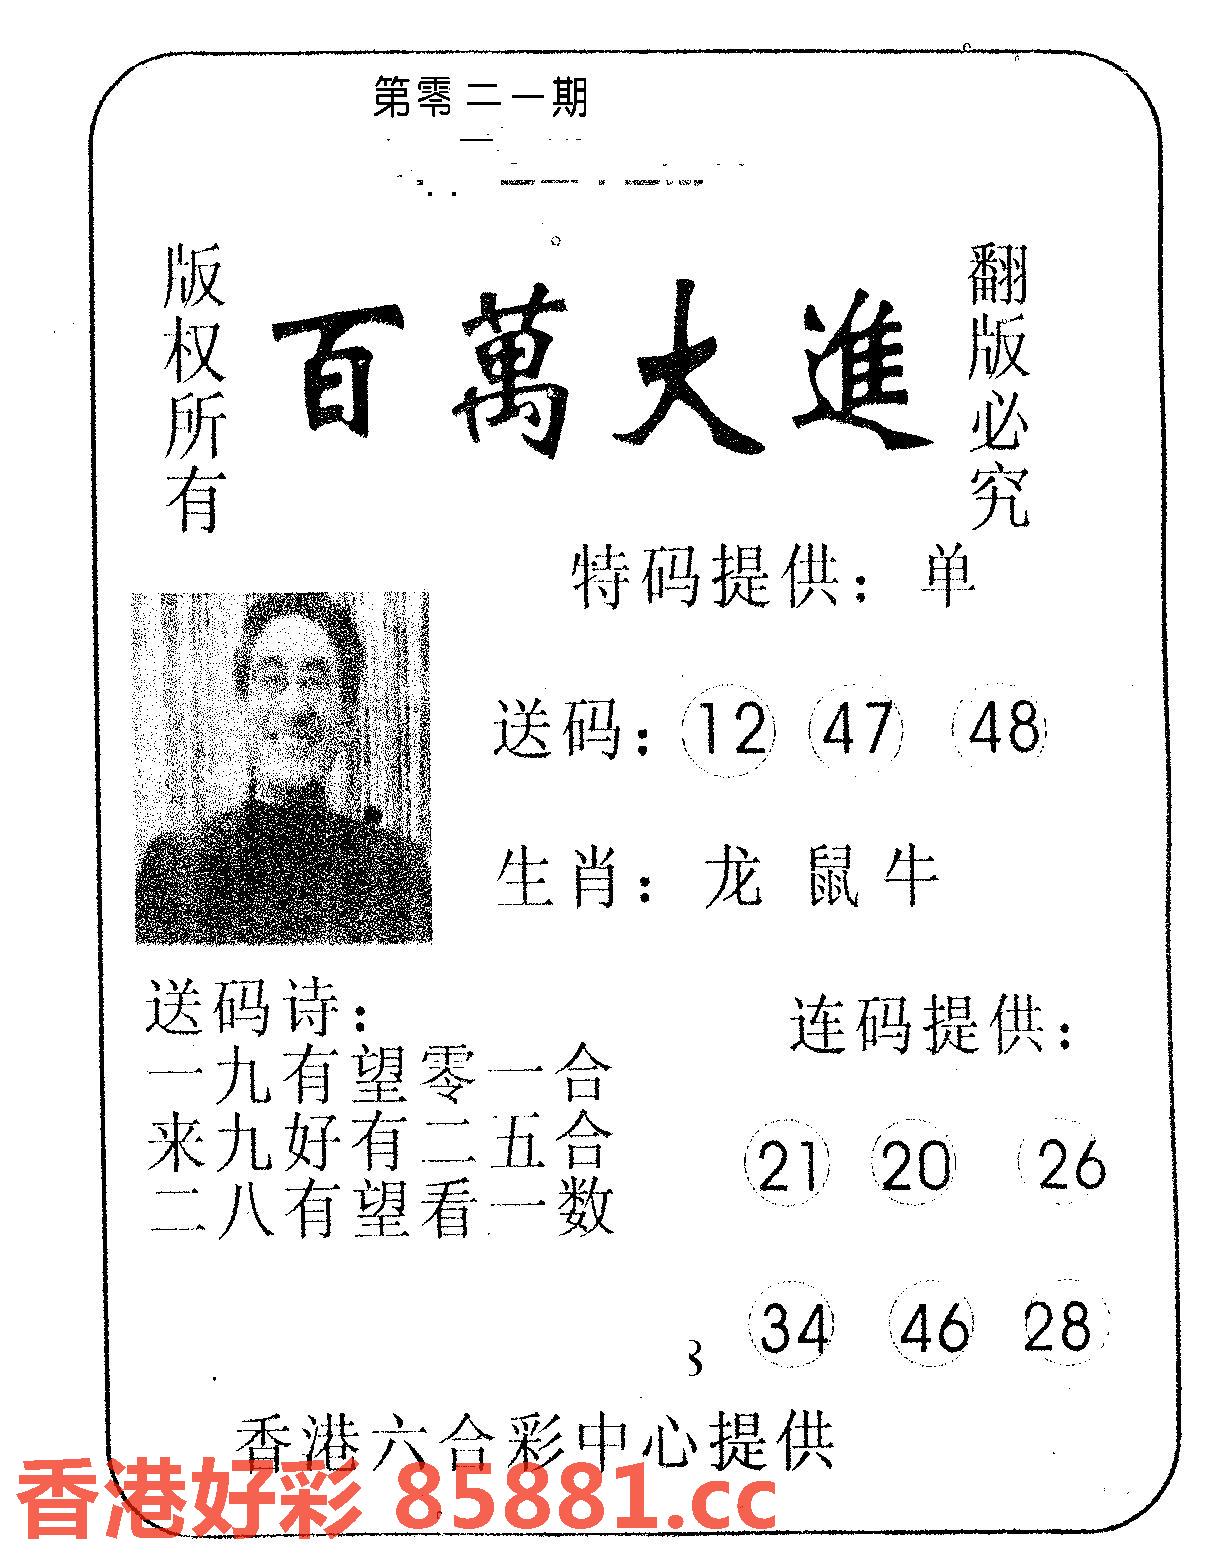 第零二一期
版权所有
百萬大進
翻版必究
特码提供：单
送码：12 47 48
生肖：龙 鼠 牛
送码诗：
一九有望零一合
来九好有二五合
二八有望看一数
连码提供：
21 20 26
34 46 28
香港六合彩中心提供
香港好彩 85881.cc